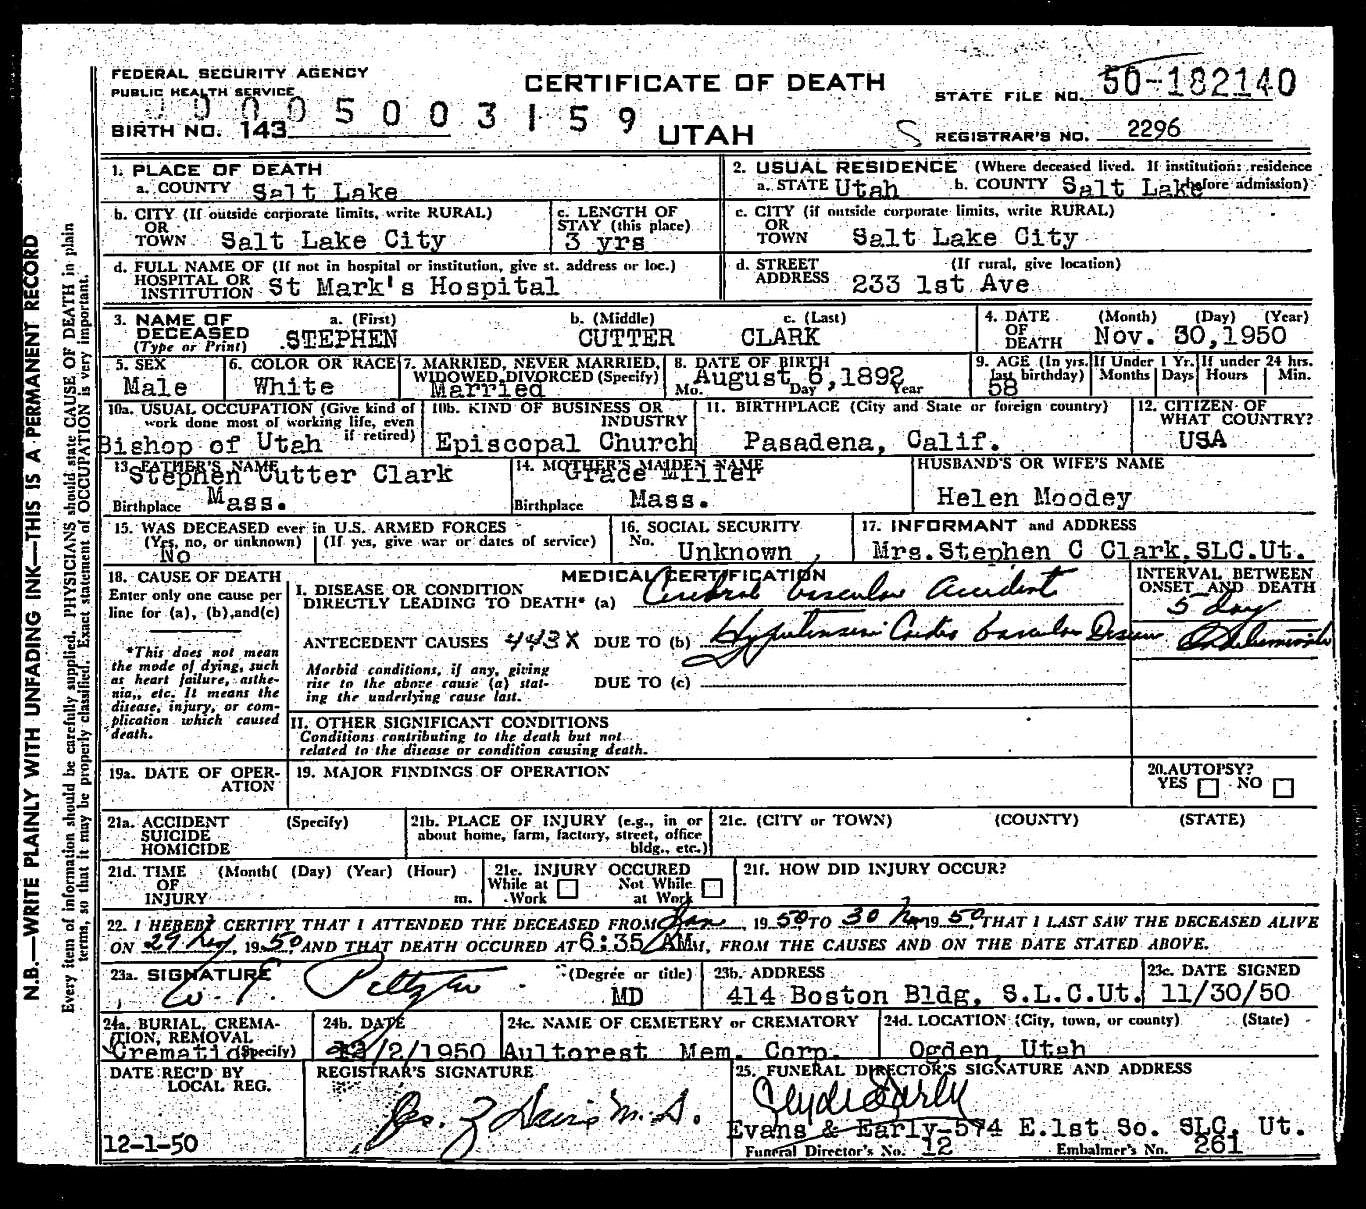 FEDERAL SECURITY AGENCY
PUBLIC HEALTH SERVICE
CERTIFICATE OF DEATH
STATE FILE NO. 50-182140
0005003159
BIRTH NO. 143
UTAH
S REGISTRAR'S NO. 2296
1. PLACE OF DEATH
a. COUNTY Salt Lake
2. USUAL RESIDENCE (Where deceased lived. If institution: residence before admission)
a. STATE Utah b. COUNTY Salt Lake
b. CITY (If outside corporate limits, write RURAL)
OR
TOWN Salt Lake City
c. LENGTH OF
STAY (this place)
3 yrs
c. CITY (if outside corporate limits, write RURAL)
OR
TOWN Salt Lake City
d. FULL NAME OF (If not in hospital or institution, give st. address or loc.)
HOSPITAL OR
INSTITUTION St Mark's Hospital
d. STREET (If rural, give location)
ADDRESS 233 1st Ave
3. NAME OF
DECEASED
(Type or Print)
a. (First) b. (Middle) c. (Last)
STEPHEN CUTTER CLARK
4. DATE (Month) (Day) (Year)
OF
DEATH Nov. 30,1950
5. SEX
Male
6. COLOR OR RACE
White
7. MARRIED, NEVER MARRIED,
WIDOWED, DIVORCED (Specify)
Married
8. DATE OF BIRTH
August 6,1892
Mo. Day Year
9. AGE (In yrs. last birthday)
58
If Under 1 Yr.
Months Days
If under 24 hrs.
Hours Min.
10a. USUAL OCCUPATION (Give kind of
work done most of working life, even
if retired)
Bishop of Utah
10b. KIND OF BUSINESS OR
INDUSTRY
Episcopal Church
11. BIRTHPLACE (City and State or foreign country)
Pasadena, Calif.
12. CITIZEN OF
WHAT COUNTRY?
USA
13. FATHER'S NAME
Stephen Cutter Clark
Birthplace Mass.
14. MOTHER'S MAIDEN NAME
Grace Miller
Birthplace Mass.
HUSBAND'S OR WIFE'S NAME
Helen Moodey
15. WAS DECEASED ever in U.S. ARMED FORCES
(Yes, no, or unknown) (If yes, give war or dates of service)
No
16. SOCIAL SECURITY
No. Unknown
17. INFORMANT and ADDRESS
Mrs.Stephen C Clark,SLC.Ut.
18. CAUSE OF DEATH
Enter only one cause per
line for (a), (b),and(c)
*This does not mean
the mode of dying, such
as heart failure, asthe-
nia,, etc. It means the
disease, injury, or com-
plication which caused
death.
MEDICAL CERTIFICATION
I. DISEASE OR CONDITION
DIRECTLY LEADING TO DEATH* (a) Cerebral Vascular Accident
ANTECEDENT CAUSES 443X DUE TO (b) Hypertensive Cardio Vascular Disease
Morbid conditions, if any, giving
rise to the above cause (a) stat-
ing the underlying cause last.
DUE TO (c)
II. OTHER SIGNIFICANT CONDITIONS
Conditions contributing to the death but not
related to the disease or condition causing death.
INTERVAL BETWEEN
ONSET AND DEATH
5 day
19a. DATE OF OPER-
ATION
19. MAJOR FINDINGS OF OPERATION
20.AUTOPSY?
YES NO
21a. ACCIDENT (Specify)
SUICIDE
HOMICIDE
21b. PLACE OF INJURY (e.g., in or
about home, farm, factory, street, office
bldg., etc.)
21c. (CITY or TOWN) (COUNTY) (STATE)
21d. TIME (Month( (Day) (Year) (Hour)
OF
INJURY m.
21e. INJURY OCCURED
While at Work Not While at Work
21f. HOW DID INJURY OCCUR?
22. I HEREBY CERTIFY THAT I ATTENDED THE DECEASED FROM June, 19 50 TO 30 Nov 19 50, THAT I LAST SAW THE DECEASED ALIVE
ON 29 Nov, 19 50 AND THAT DEATH OCCURED AT 6:35 AM M, FROM THE CAUSES AND ON THE DATE STATED ABOVE.
23a. SIGNATURE (Degree or title)
MD
23b. ADDRESS
414 Boston Bldg, S.L.C.Ut.
23c. DATE SIGNED
11/30/50
24a. BURIAL, CREMA-
TION, REMOVAL
(Specify)
Cremation
24b. DATE
12/2/1950
24c. NAME OF CEMETERY or CREMATORY
Aultorest Mem. Corp.
24d. LOCATION (City, town, or county) (State)
Ogden, Utah
DATE REC'D BY
LOCAL REG.
12-1-50
REGISTRAR'S SIGNATURE
25. FUNERAL DIRECTOR'S SIGNATURE AND ADDRESS
Clyde Early
Evans & Early-574 E.1st So. SLC. Ut.
Funeral Director's No. 12 Embalmer's No. 261
N.B.—WRITE PLAINLY WITH UNFADING INK—THIS IS A PERMANENT RECORD
Every item of information should be carefully supplied. PHYSICIANS should state CAUSE OF DEATH in plain
terms, so that it may be properly classified. Exact statement of OCCUPATION is very important.